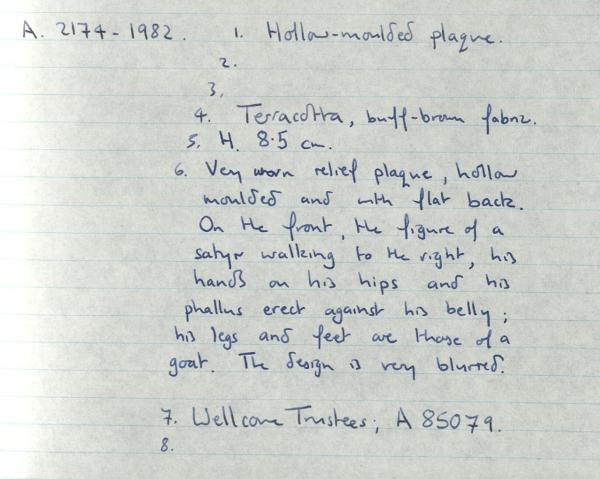 A. 2174-1982. 1. Hollow-moulded plaque.
2.
3.
4. Terracotta, buff-brown fabric.
5. H. 8.5 cm.
6. Very worn relief plaque, hollow
moulded and with flat back.
On the front, the figure of a
satyr walking to the right, his
hands on his hips and his
phallus erect against his belly;
his legs and feet are those of a
goat. The design is very blurred.
7. Wellcome Trustees; A 85079.
8.